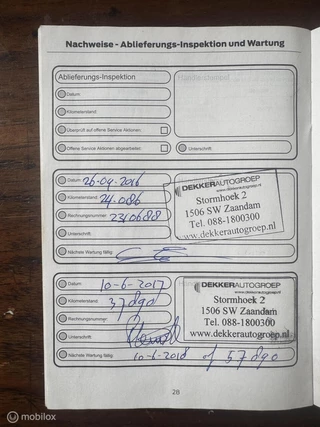 Nachweise - Ablieferungs-Inspektion und Wartung
Ablieferungs-Inspektion
Händlerstempel
Datum:
Kilometerstand:
Überprüft auf offene Service Aktionen:
Offene Service Aktionen abgearbeitet:
Unterschrift
Datum: 26-04-2016
Kilometerstand: 24.086
Rechnungsnummer: 2310688
Unterschrift:
Nächste Wartung fällig:
DEKKERAUTOGROEP
www.dekkerautogroep.nl
Stormhoek 2
1506 SW Zaandam
Tel. 088-1800300
www.dekkerautogroep.nl
Datum: 10-6-2017
Kilometerstand: 37890
Rechnungsnummer:
Unterschrift:
Nächste Wartung fällig: 10-6-2018 of 57890
DEKKERAUTOGROEP
www.dekkerautogroep.nl
Stormhoek 2
1506 SW Zaandam
Tel. 088-1800300
www.dekkerautogroep.nl
28
mobilox